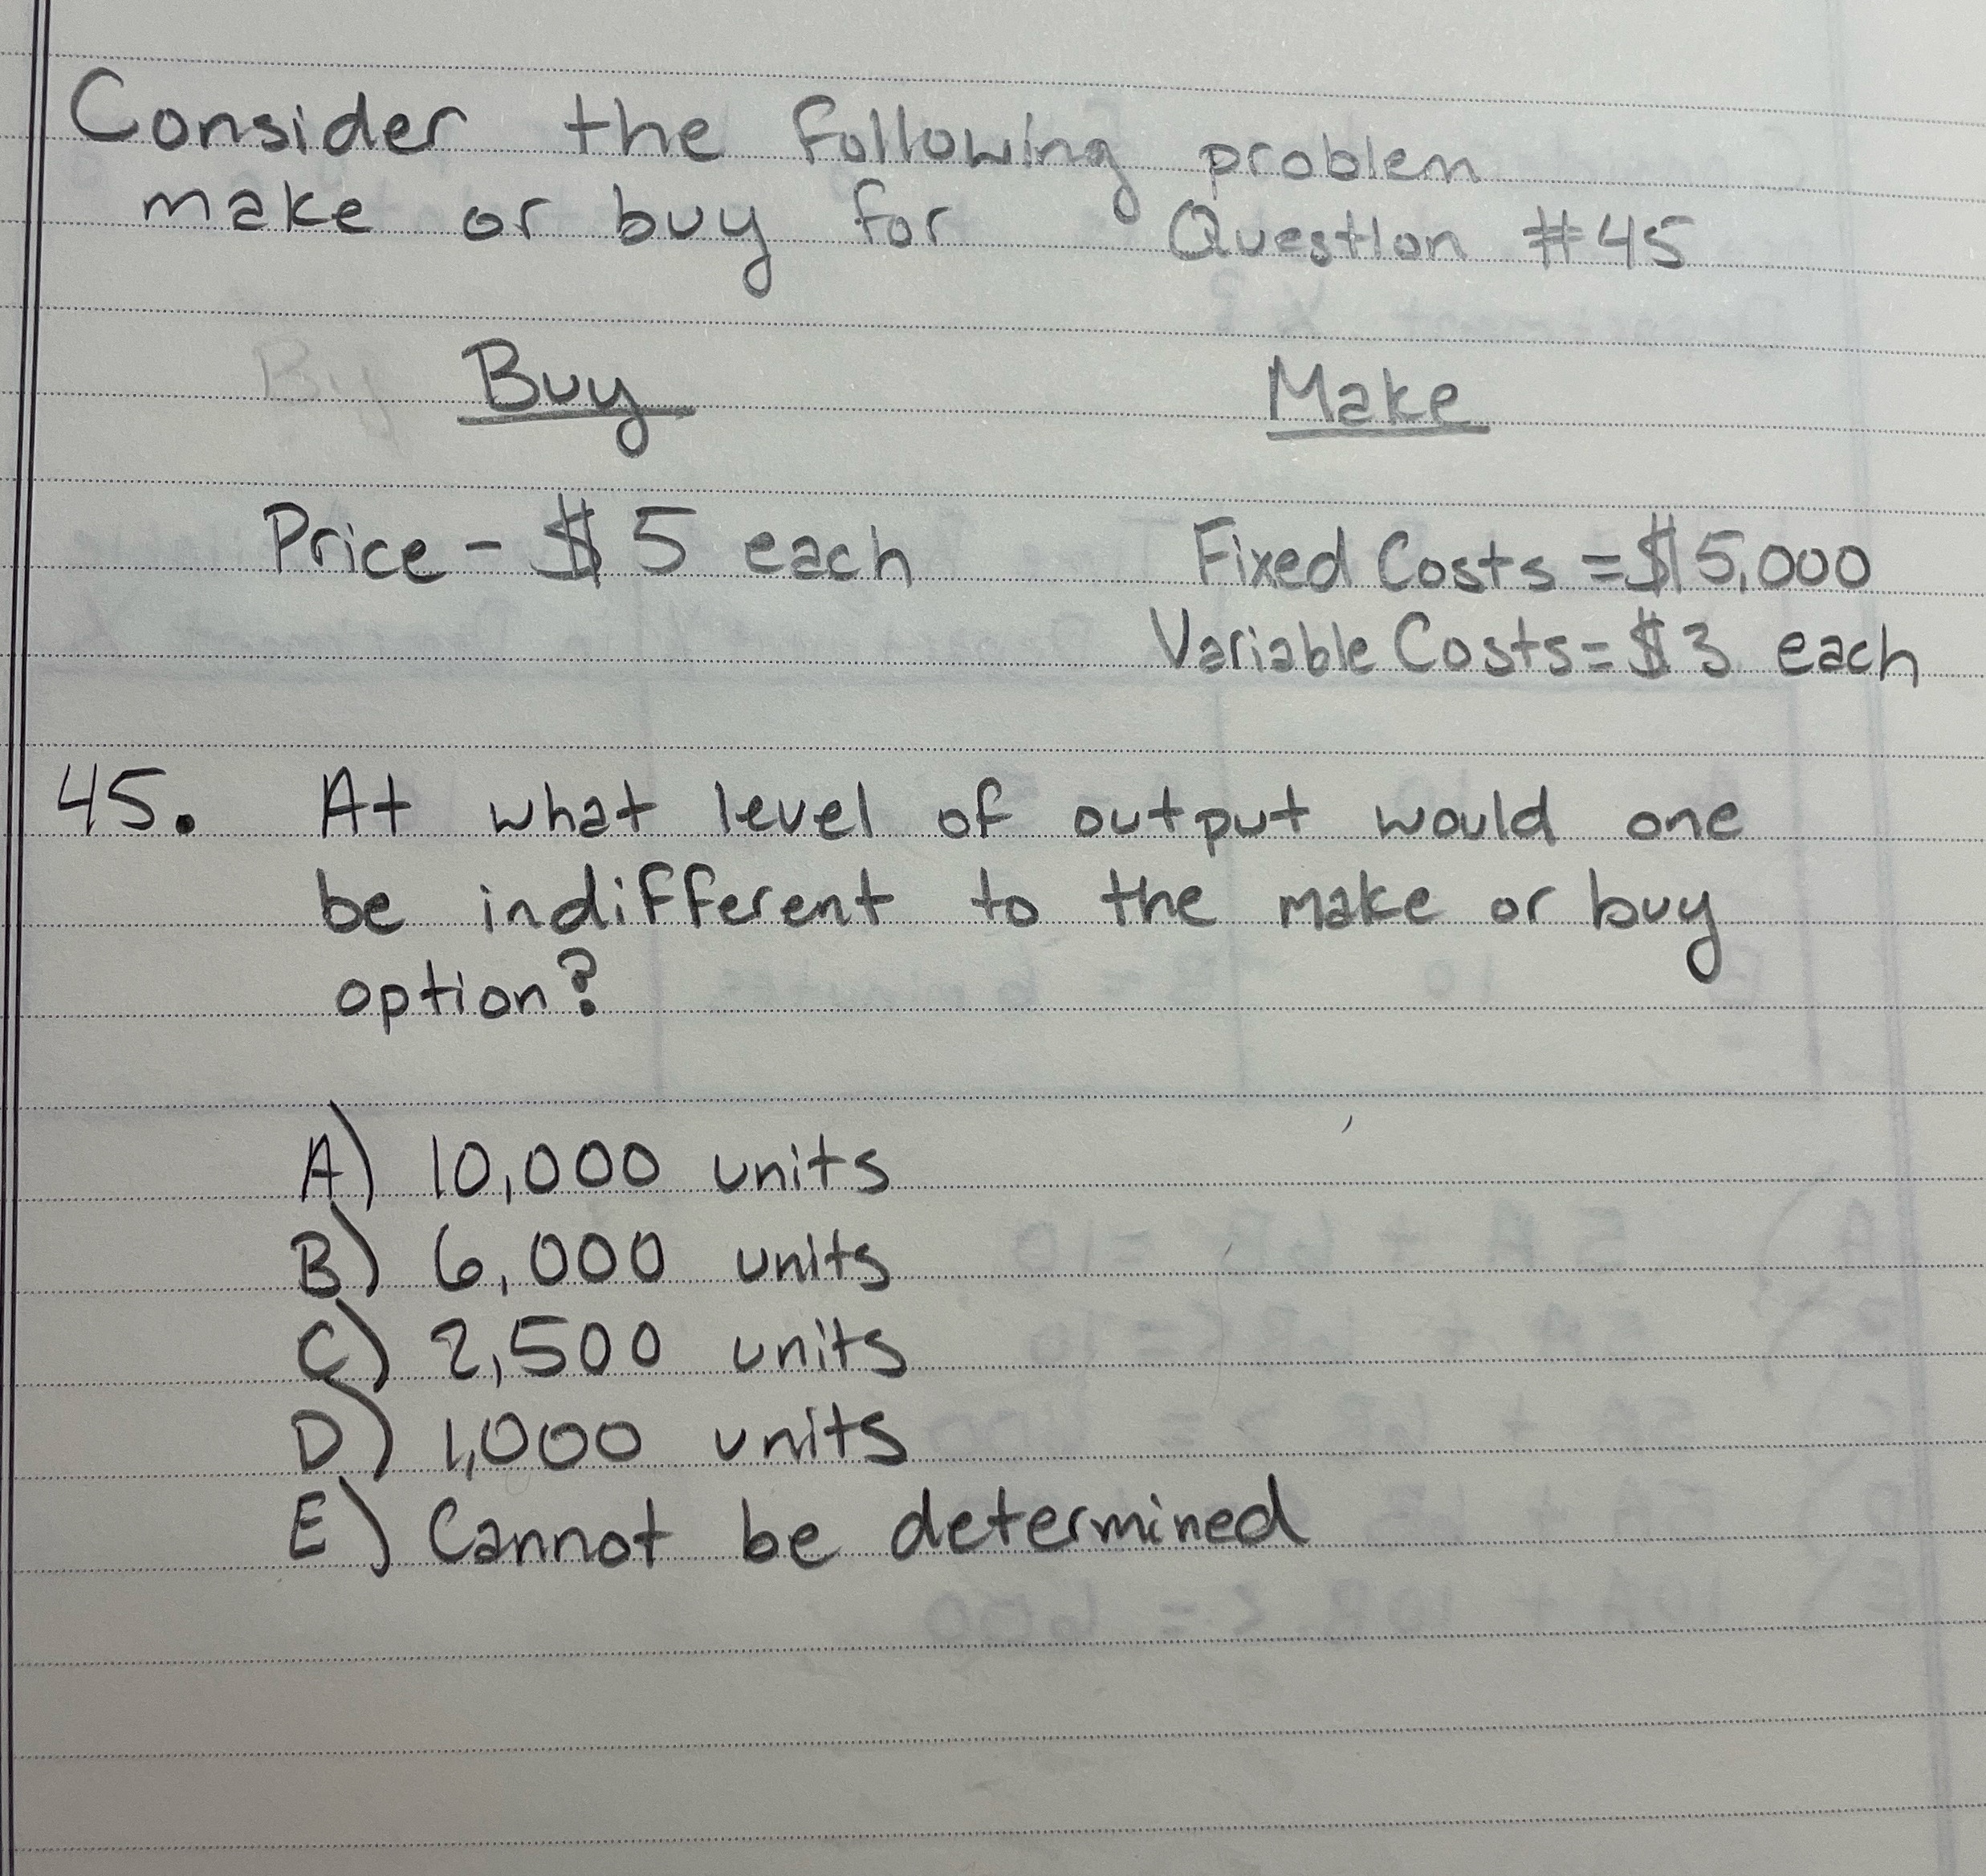 Consider the following problem
make or buy for Question #45
By Buy Make
Price - $5 each Fixed Costs = $5,000
Variable Costs = $3 each
45. At what level of output would one
be indifferent to the make or buy
option?
A) 10,000 units
B) 6,000 units
C) 2,500 units
D) 1,000 units
E) Cannot be determined